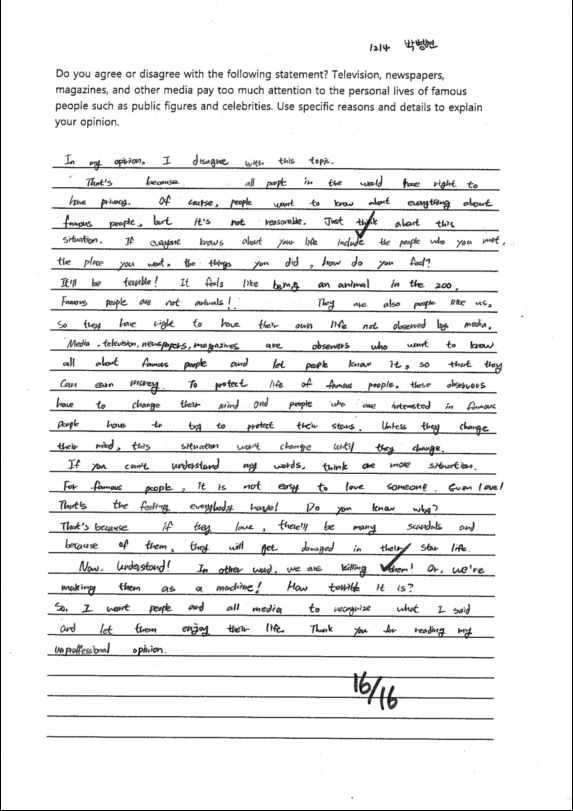 1214 박병현
Do you agree or disagree with the following statement? Television, newspapers,
magazines, and other media pay too much attention to the personal lives of famous
people such as public figures and celebrities. Use specific reasons and details to explain
your opinion.
In my opinion, I disagree with this topic.
That's because all people in the world have right to
have privacy. Of course, people want to know about everything about
famous people, but it's not reasonable. Just think about this
situation. If everyone knows about your life include the people who you met,
the place you went, the things you did, how do you feel?
It'll be terrible! It feels like being an animal in the zoo.
Famous people are not animals! They are also people like us,
so they have right to have their own life not observed by media.
Media, television, newspapers, magazines are observers who want to know
all about famous people and let people know it, so that they
can earn money. To protect life of famous people, these observers
have to change their mind and people who are interested in famous
people have to try to protect their stars. Unless they change
their mind, this situation won't change until they change.
If you can't understand my words, think one more situation.
For famous people, it is not easy to love someone. Even love!
That's the feeling everybody have! Do you know why?
That's because if they love, there'll be many scandals and
because of them, they will get damaged in their star life.
Now. Understand! In other word, we are killing them! Or, we're
making them as a machine! How terrible it is?
So, I want people and all media to recognize what I said
and let them enjoy their life. Thank you for reading my
unproffessional opinion.
16/16